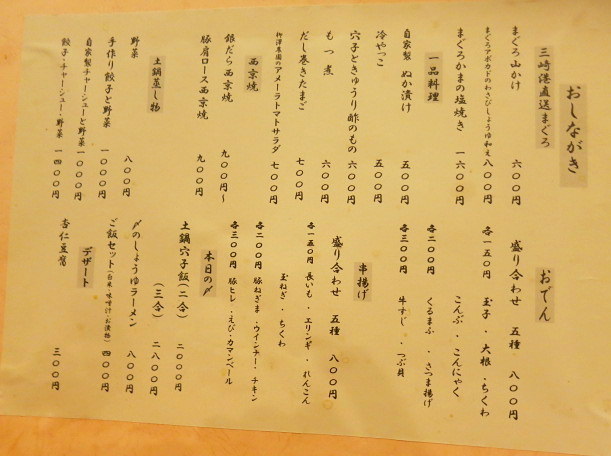 おしながき
三崎港直送まぐろ
まぐろ山かけ 六〇〇円
まぐろアボカドのわさびしょうゆ和え 八〇〇円
まぐろかまの塩焼き 一六〇〇円
一品料理
自家製 ぬか漬け 五〇〇円
冷やっこ 五〇〇円
穴子ときゅうり酢のもの 六〇〇円
もつ煮 六〇〇円
だし巻きたまご 七〇〇円
井澤農園のアメーラトマトサラダ 七〇〇円
西京焼
銀だら西京焼 九〇〇円〜
豚肩ロース西京焼 九〇〇円
土鍋蒸し物
野菜 八〇〇円
手作り餃子と野菜 一〇〇〇円
自家製チャーシューと野菜 一〇〇〇円
餃子・チャーシュー・野菜 一四〇〇円
おでん
盛り合わせ 五種 八〇〇円
各一五〇円 玉子・大根・ちくわ
こんぶ・こんにゃく
各二〇〇円 くるまふ・さつま揚げ
各三〇〇円 牛すじ・つぶ貝
串揚げ
盛り合わせ 五種 八〇〇円
各一五〇円 長いも・エリンギ・れんこん
玉ねぎ・ちくわ
各二〇〇円 豚ねぎま・ウインナー・チキン
各三〇〇円 豚ヒレ・えび・カマンベール
本日の〆
土鍋穴子飯(二合) 二〇〇〇円
(三合) 二八〇〇円
〆のしょうゆラーメン 八〇〇円
ご飯セット(白米・味噌汁・お漬物) 四〇〇円
デザート
杏仁豆腐 三〇〇円